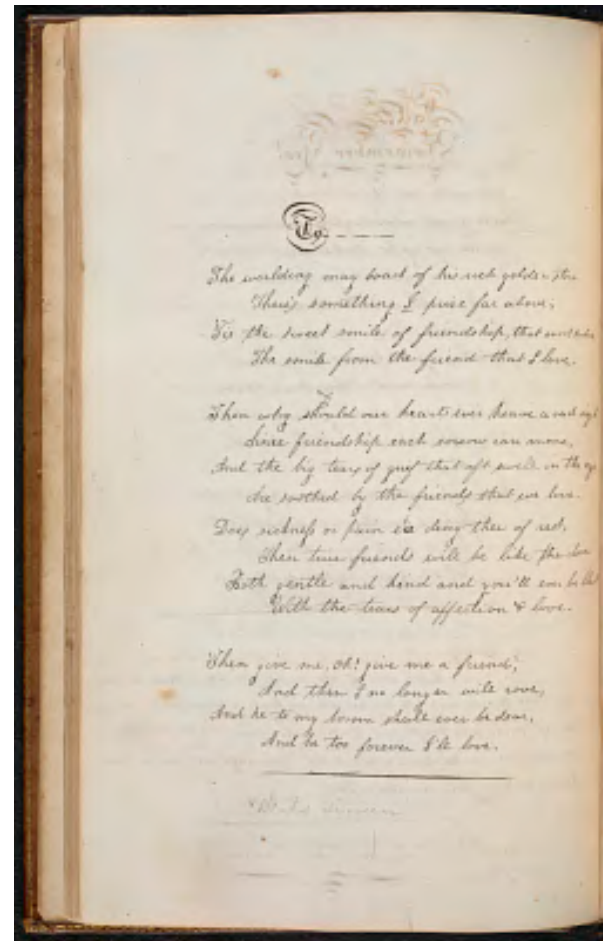 To - - - - -
The worlding may boast of his rich golden
There's something I prize far above;
Tis the sweet smile of friendship, that
The smile from the friend that I love.
Then why should our hearts ever heave a
Since friendship each sorrow can move,
And the big tears of grief that oft swell in the eye
Are soothed by the friends that we love.
Does sickness or pain deny thee of rest,
Then true friends will be like the dove
Both gentle and kind and you'll ever be
With the tears of affection & love.
Then give me, oh! give me a friend,
And then I no longer will rove,
And he to my bosom shall ever be dear,
And he too forever I'll love.